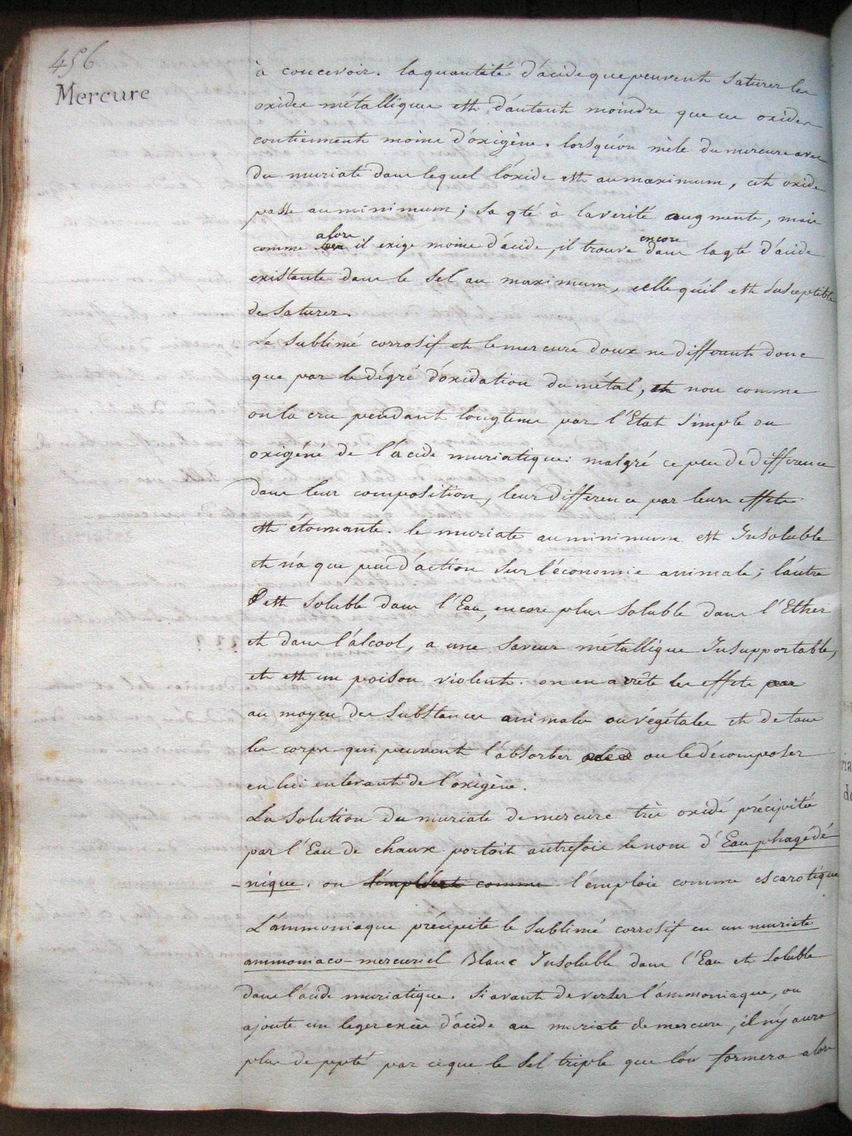 456
Mercure
à concevoir. la quantité d'acide que peuvent saturer les
oxides métalliques est d'autant moindre que ces oxides
contiennent moins d'oxigène. lorsqu'on mêle du mercure avec
du muriate dans lequel l'oxide est au maximum, cet oxide
passe au minimum ; sa qté à la verité augmente, mais
comme alors il exige moins d'acide, il trouve encore dans la qté d'acide
existante dans le sel au maximum, celle qu'il est susceptible
de saturer.
Le sublimé corrosif et le mercure doux ne different donc
que par le dégré d'oxidation du métal, et non comme
on la cru pendant longtems par l'Etat simple ou
oxigéne de l'acide muriatique: malgré ce peu de difference
dans leur composition, leur difference par leurs effets
est étonnante. le muriate au minimum est Insoluble
et n'a que peu d'action sur l'économie animale ; l'autre
est soluble dans l'Eau, encore plus soluble dans l'Ether
et dans l'álcool, a une saveur métallique Insupportable,
et est un poison violent. on en arrête les effets
au moyen des substances animales ou végétales et de tous
les corps qui peuvent l'absorber ou le décomposer
en lui enlevant de l'oxigène.
La solution du muriate de mercure très oxidé précipitée
par l'Eau de chaux portoit autrefois le nom d'Eau phagédé
-nique. on l'emploie comme escarotique
L'ammoniaque précipite le sublimé corrosif en un muriate
ammoniaco-mercuriel Blanc Insoluble dans l'Eau et soluble
dans l'acide muriatique. si avant de verser l'ammoniaque, on
ajoute un leger excès d'acide au muriate de mercure, il n'y aura
plus de ppté par ce que le sel triple que l'on formera alors